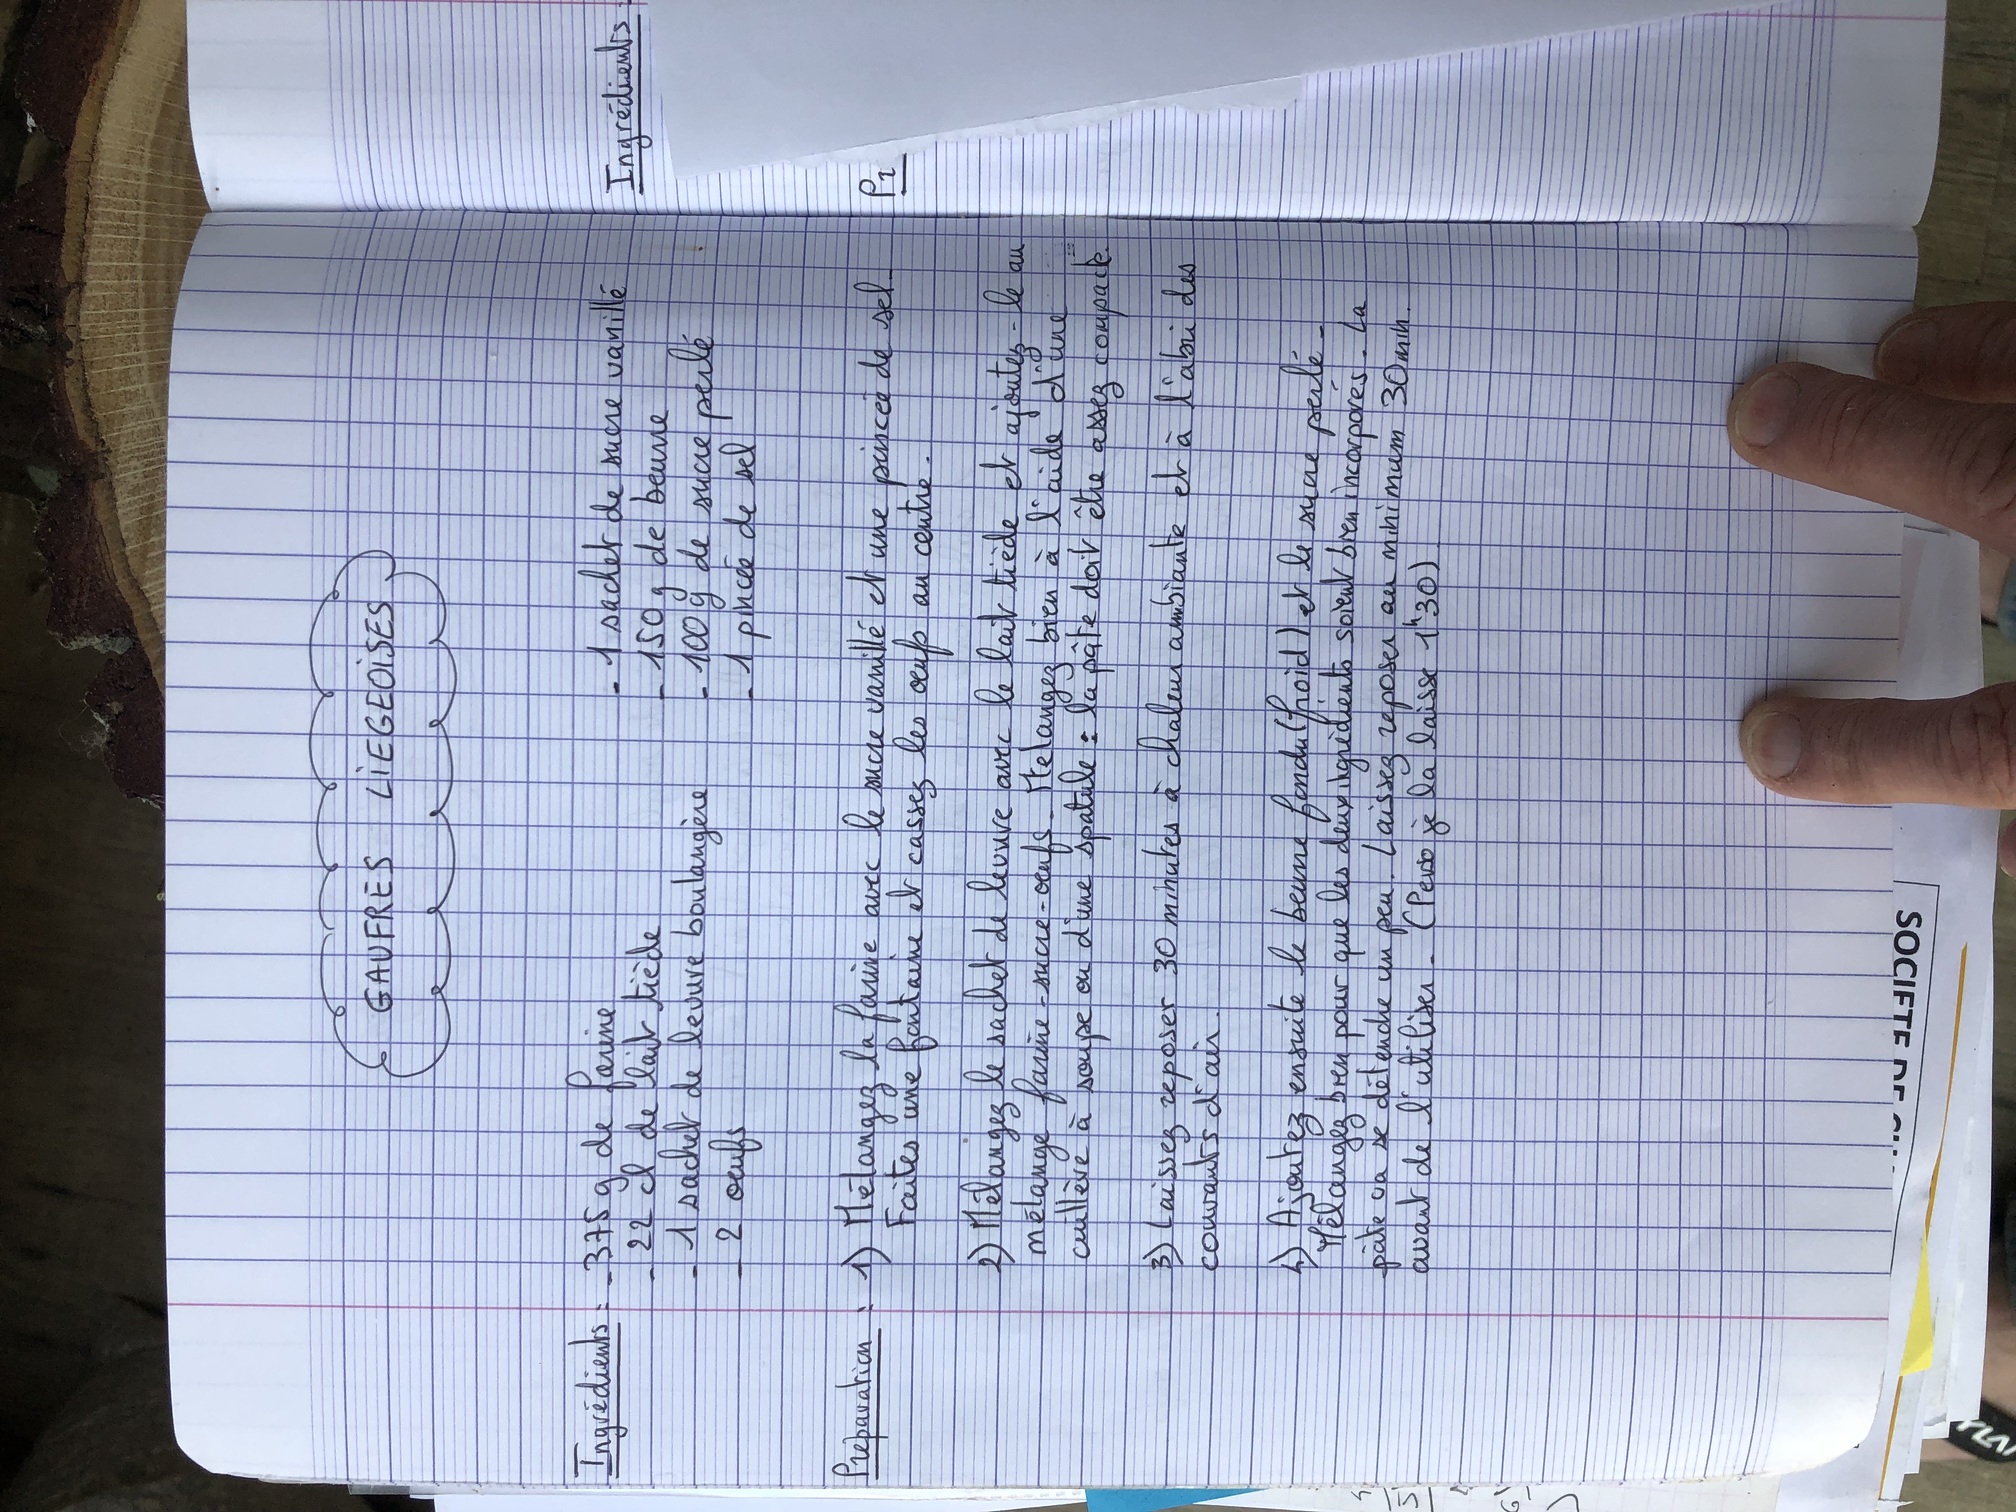 GAUFRES LIEGEOISES
Ingrédients : - 375 g de farine
- 22 cl de lait tiède
- 1 sachet de levure boulangère
- 2 œufs
- 1 sachet de sucre vanillé
- 150 g de beurre
- 100 g de sucre perlé
- 1 pincée de sel
Préparation : 1) Mélangez la farine avec le sucre vanillé et une pincée de sel.
Faites une fontaine et cassez les œufs au centre.
2) Mélangez le sachet de levure avec le lait tiède et ajoutez-le au
mélange farine-sucre-œufs. Melangez bien à l'aide d'une
cuillère à soupe ou d'une spatule : la pâte doit être assez compacte.
3) Laissez reposer 30 minutes à chaleur ambiante et à l'abri des
courants d'air.
4) Ajoutez ensuite le beurre fondu (froid) et le sucre perlé -
Mélangez bien pour que les deux ingrédients soient bien incorporés. La
pâte va se détendre un peu. Laissez reposer au minimum 30 min.
avant de l'utiliser. (Perso je la laisse 1h30)
Ingrédients :
Pr
SOCIETE DE